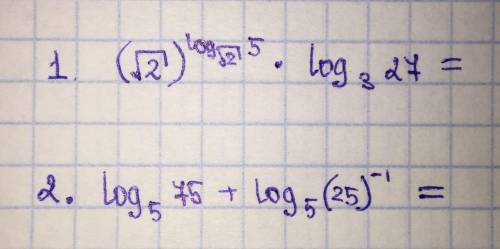 1. (√2)^(log_√2 5) · log₃ 27 =
2. log₅ 75 + log₅ (25)⁻¹ =